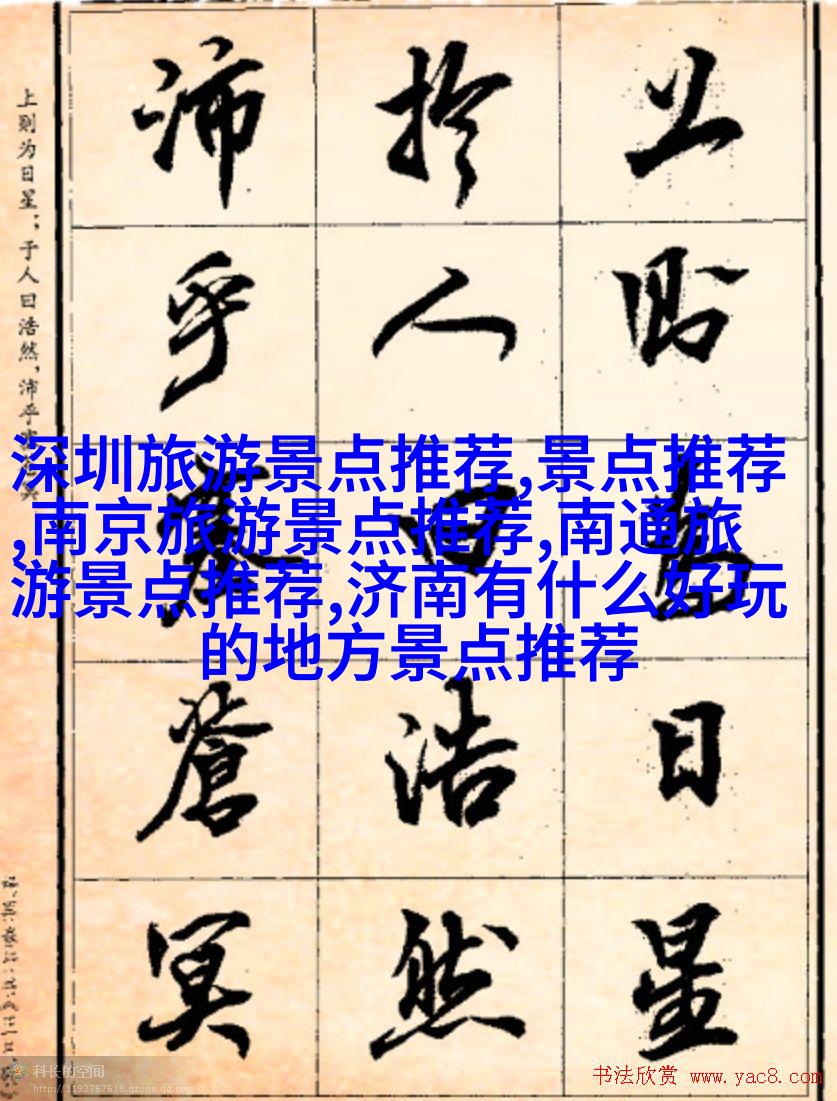 上則為日星
扵人曰浩然
沛乎塞蒼冥
上则为日星；于人曰浩然，沛乎
深圳旅游景点推荐,景点推荐
,南京旅游景点推荐,南通旅
游景点推荐,济南有什么好玩
的地方景点推荐
科长的空间
http://1193767618.qzone.qq.com
书法欣赏 www.yac8.com